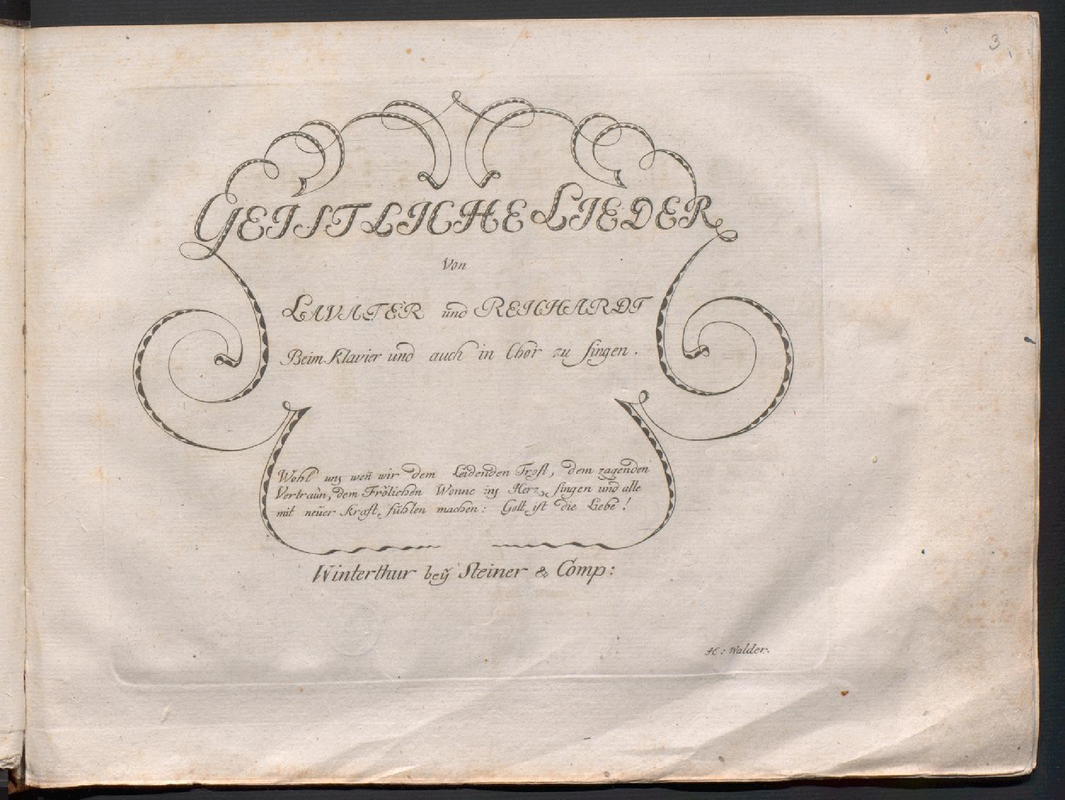 3
GEISTLICHE LIEDER
Von
LAVATER und REICHARDT
Beim Klavier und auch in Chör zu singen.
Wohl uns, weñ wir dem Leidenden Trost, dem zagenden
Vertraün, dem Frölichen Wonne ins Herz singen und alle
mit neüer Kraft fühlen machen: Gott ist die Liebe!
Winterthur beÿ Steiner & Comp:
H: Walder.